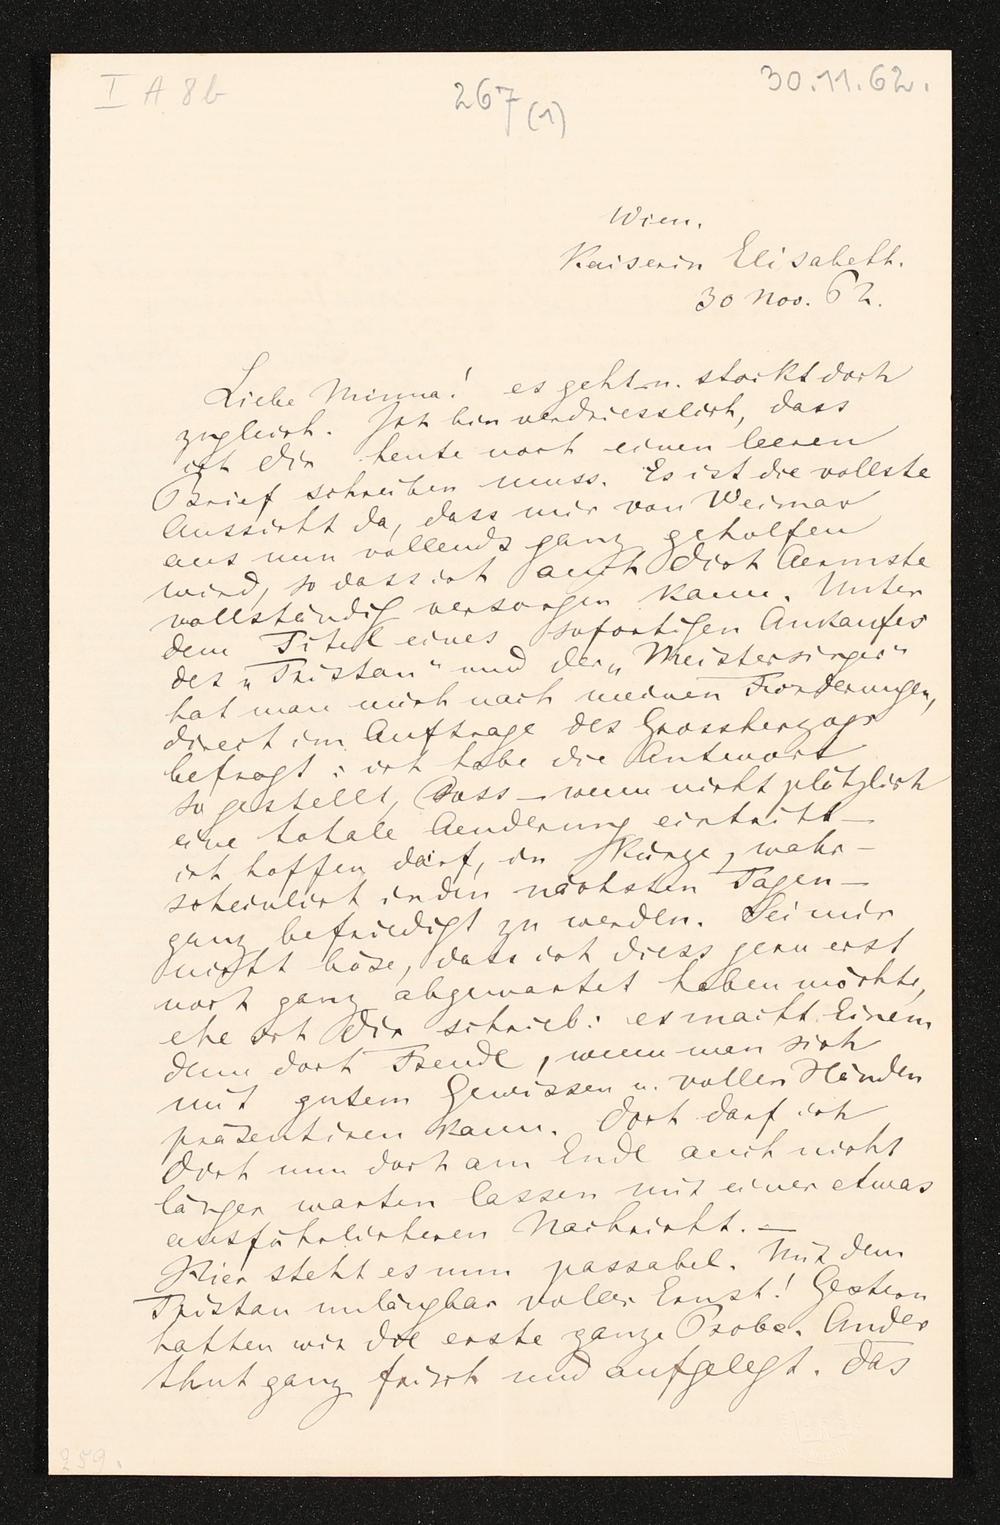 I A 8b
267
(1)
30.11.62.
Wien.
Kaiserin Elisabeth.
30 Nov. 62.
Liebe Minna! es geht u. stockt doch
zugleich. Ich bin verdriesslich, dass
ich Dir heute noch einen leeren
Brief schreiben muss. Es ist die vollste
Aussicht da, dass mir von Weimar
aus nun vollends ganz geholfen
wird, so dass ich auch Dich Aermste
vollständig versorgen kann. Unter
dem Titel eines sofortigen Ankaufes
des „Tristan" und der „Meistersinger"
hat man mich nach meinen Forderungen,
direct im Auftrage des Grossherzogs
befragt: ich habe die Antwort
so gestellt, dass – wenn nicht plötzlich
eine totale Aenderung eintritt –
ich hoffen darf, in Kürze, wahr-
scheinlich in den nächsten Tagen –
ganz befriedigt zu werden. Sei mir
nicht böse, dass ich diess gern erst
noch ganz abgewartet haben möchte,
ehe ich Dir schrieb: es macht Einem
denn doch Freude, wenn man sich
mit gutem Gewissen u. vollen Händen
präsentiren kann. Doch darf ich
Dich nun doch am Ende auch nicht
länger warten lassen mit einer etwas
ausführlicheren Nachricht. —
Hier steht es nun passabel. Mit dem
Tristan unläugbar voller Ernst! Gestern
hatten wir die erste ganze Probe. Ander
thut ganz frisch und aufgelegt. Das
259.